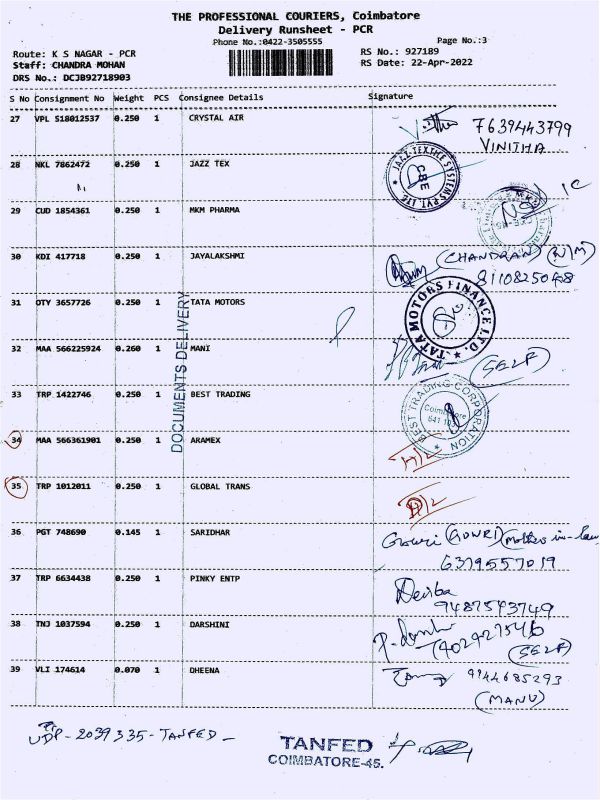 THE PROFESSIONAL COURIERS, Coimbatore
Delivery Runsheet - PCR
Phone No.:0422-3505555 Page No.:3
Route: K S NAGAR - PCR RS No.: 927189
Staff: CHANDRA MOHAN RS Date: 22-Apr-2022
DRS No.: DCJB92718903
S No Consignment No Weight PCS Consignee Details Signature
27 VPL 518012537 0.250 1 CRYSTAL AIR 7639443799
VINITHA
28 NKL 7862472 0.250 1 JAZZ TEX
JAZZ TEXTILE SYSTEMS PVT. LTD. CBE
29 CUD 1854361 0.250 1 MKM PHARMA
30 KDI 417718 0.250 1 JAYALAKSHMI (CHANDRAN) (N/M)
8110825048
31 OTY 3657726 0.250 1 TATA MOTORS
TATA MOTORS FINANCE LTD.
DOCUMENTS DELIVERY
32 MAA 566225924 0.260 1 MANI (SELF)
33 TRP 1422746 0.250 1 BEST TRADING
BEST TRADING CORPORATION Coimbatore
34 MAA 566361901 0.250 1 ARAMEX
35 TRP 1012011 0.250 1 GLOBAL TRANS
36 PGT 748690 0.145 1 SARIDHAR Gowri (GOWRI) (mother-in-law)
6379557019
37 TRP 6634438 0.250 1 PINKY ENTP
9487543749
38 TNJ 1037594 0.250 1 DARSHINI
(SELF)
39 VLI 174614 0.070 1 DHEENA 9744685293
(MANU)
UDP-2039335-TANFED-
TANFED
COIMBATORE-45.